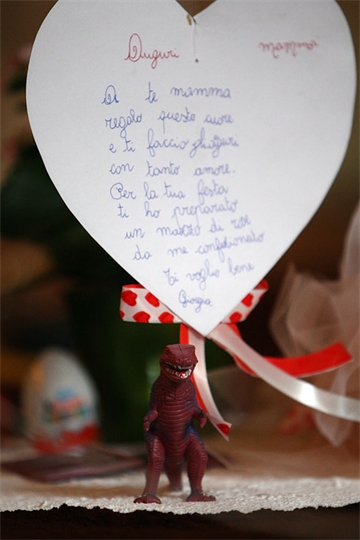 Auguri mamma
A te mamma
regalo questo cuore
e ti faccio gli auguri
con tanto amore.
Per la tua festa
ti ho preparato
un mazzo di rose
da me confezionato
Ti voglio bene
Giorgia